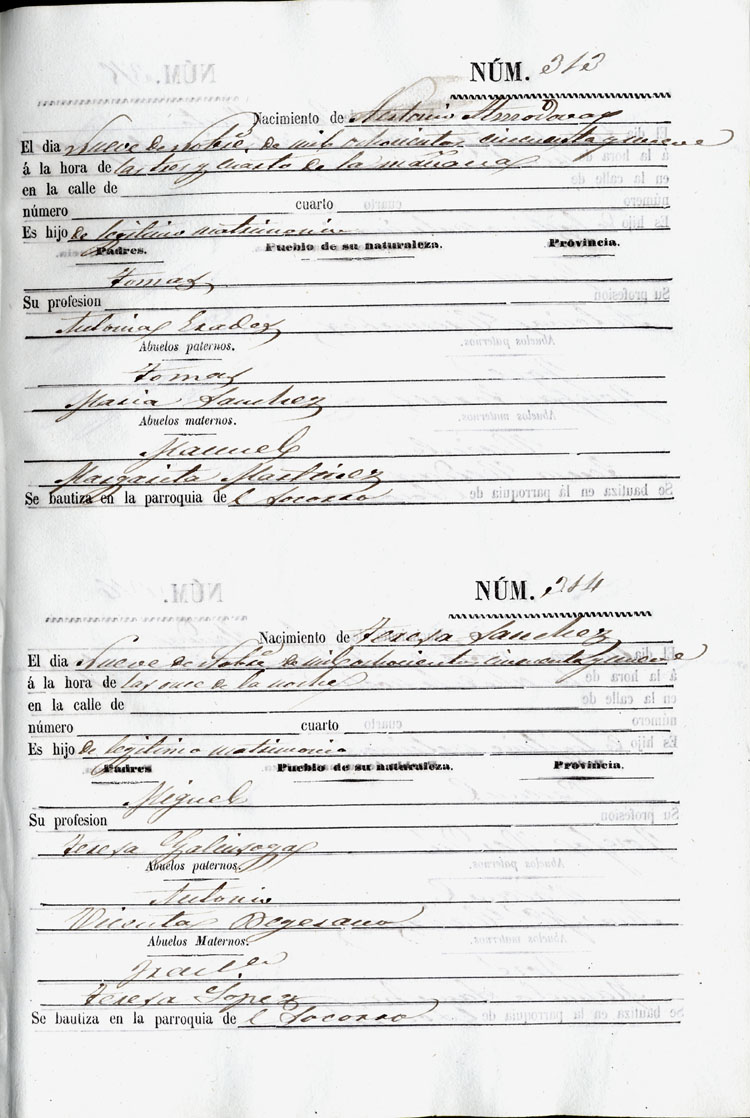 NÚM. 313
Nacimiento de Antonio Almodovar
El dia Nueve de Nobre. de mil ochocientos cincuenta y nueve
á la hora de las tres y cuarto de la mañana
en la calle de
número cuarto
Es hijo de legitimo matrimonio
Padres. Pueblo de su naturaleza. Provincia.
Tomas
Su profesion
Antonia
Abuelos paternos.
Tomas
Maria Sanchez
Abuelos maternos.
Manuel
Margarita Martinez
Se bautiza en la parroquia de l Socorro
NÚM. 314
Nacimiento de Teresa Sanchez
El dia Nueve de Nobre de mil ochocientos cincuenta y nueve
á la hora de las once de la noche
en la calle de
número cuarto
Es hijo de legitimo matrimonio
Padres Pueblo de su naturaleza. Provincia.
Miguel
Su profesion
Teresa Galinsoga
Abuelos paternos.
Antonio
Vicenta
Abuelos Maternos.
Teresa Lopez
Se bautiza en la parroquia de l Socorro